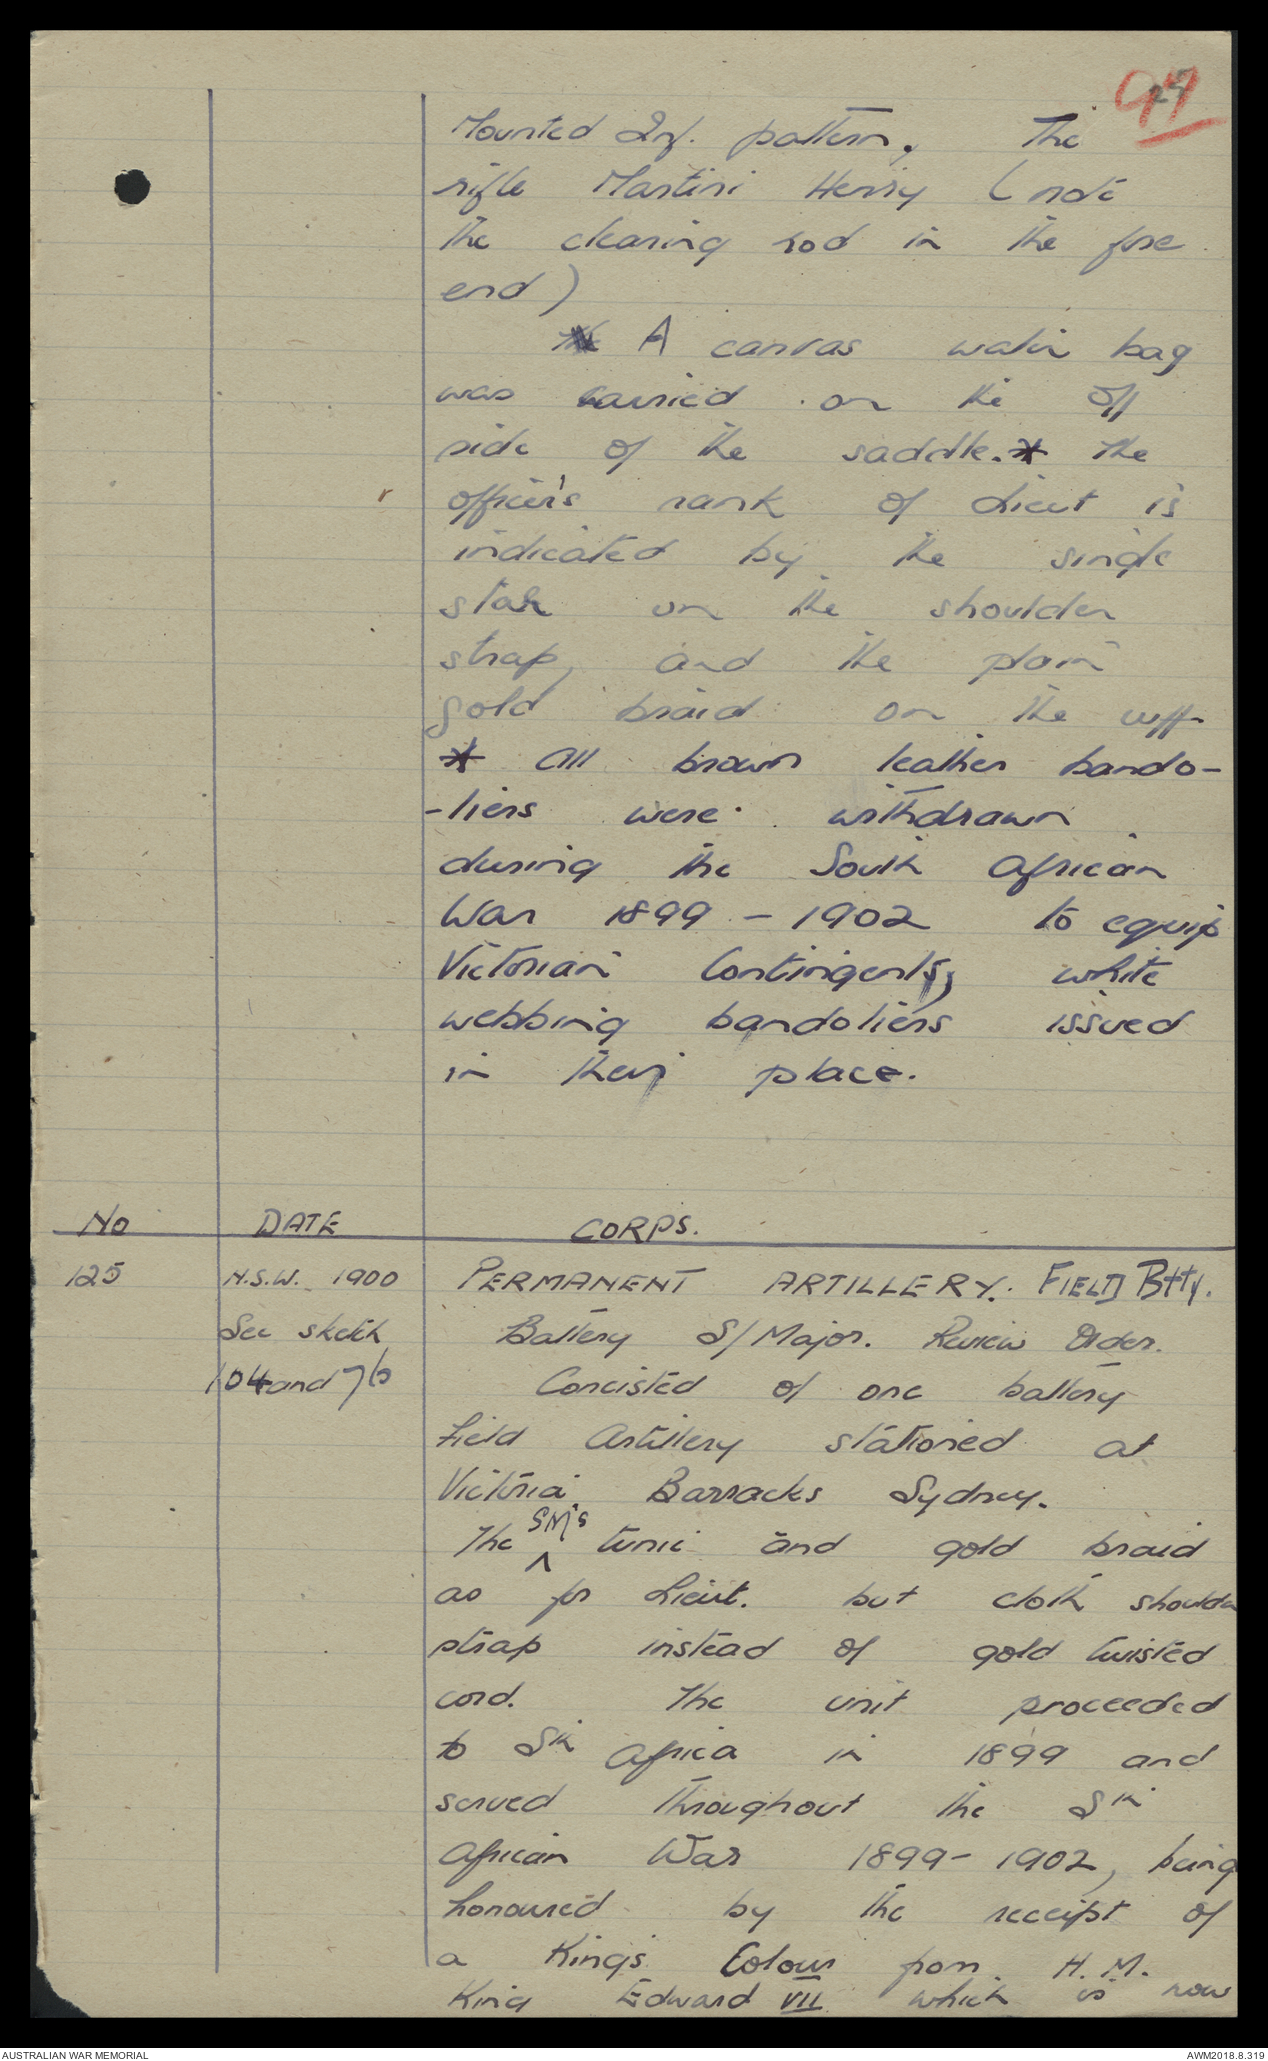 97
Mounted Inf. pattern, The
rifle Martini Henry (note
the clearing rod in the fore
end)
A canvas water bag
was carried on the off
side of the saddle.* The
officer's rank of Lieut is
indicated by the single
star on the shoulder
strap, and the plain
gold braid on the cuff
* All brown leather bando-
-liers were withdrawn
during the South African
War 1899 - 1902 to equip
Victorian Contingents, white
webbing bandoliers issued
in their place.
No DATE CORPS.
125 N.S.W. 1900 PERMANENT ARTILLERY. FIELD Btty.
See sketch Battery S/Major. Review Order.
104 and 76 Concisted of one battery
Field Artillery stationed at
Victoria Barracks Sydney.
The SM's tunic and gold braid
as for Lieut. but cloth shoulder
strap instead of gold twisted
cord. The unit proceeded
to Sth Africa in 1899 and
served throughout the Sth
African War 1899- 1902, being
honoured by the receipt of
a King's Colour from H.M.
King Edward VII which is now
AUSTRALIAN WAR MEMORIAL AWM2018.8.319